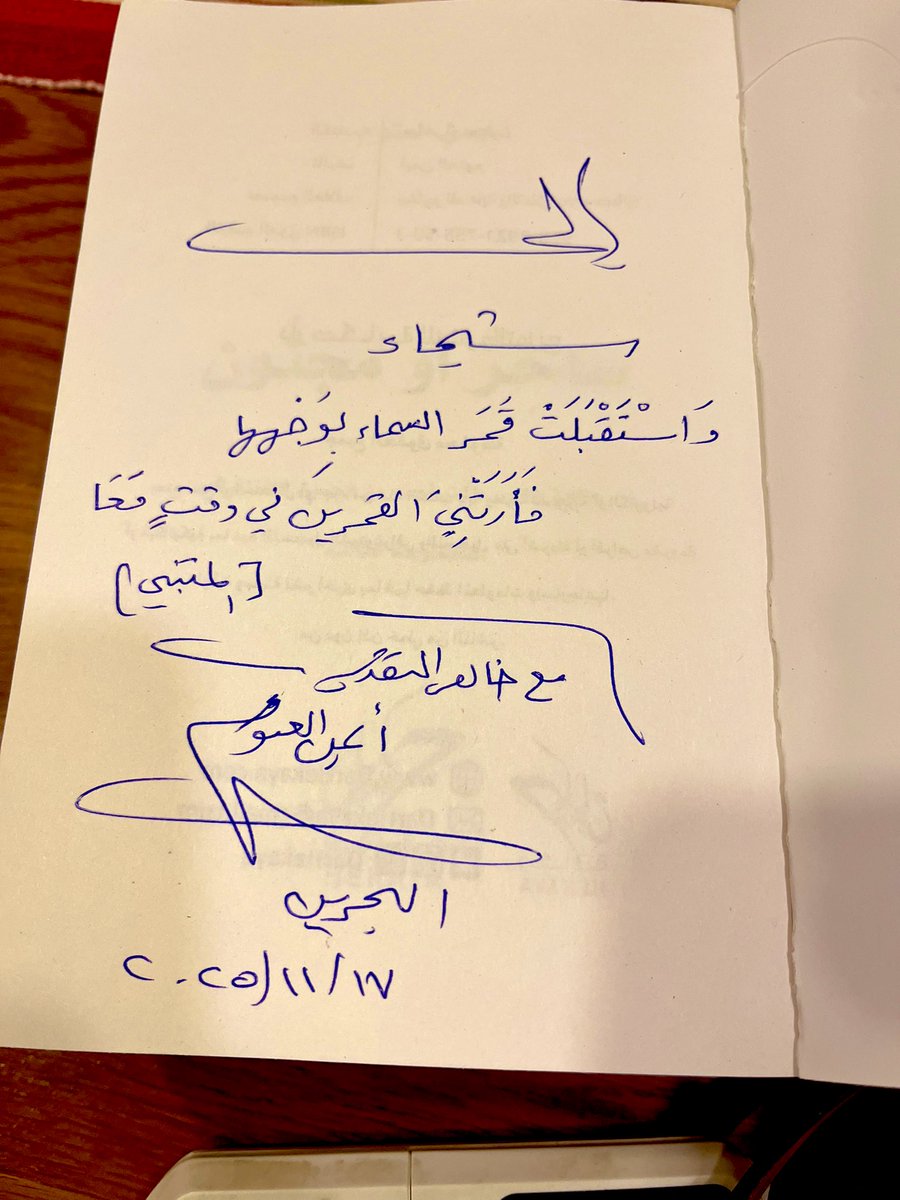 إلى
شيماء
وَاسْتَقْبَلَتْ قَمَرَ السماء بوَجْهِها
فَأَرَتْنِيَ القمرينِ في وقتٍ مَعَا
[المتنبي]
مع خالص التقدير
أيمن العتوم
البحرين
٢٠٢٥/١١/١٧